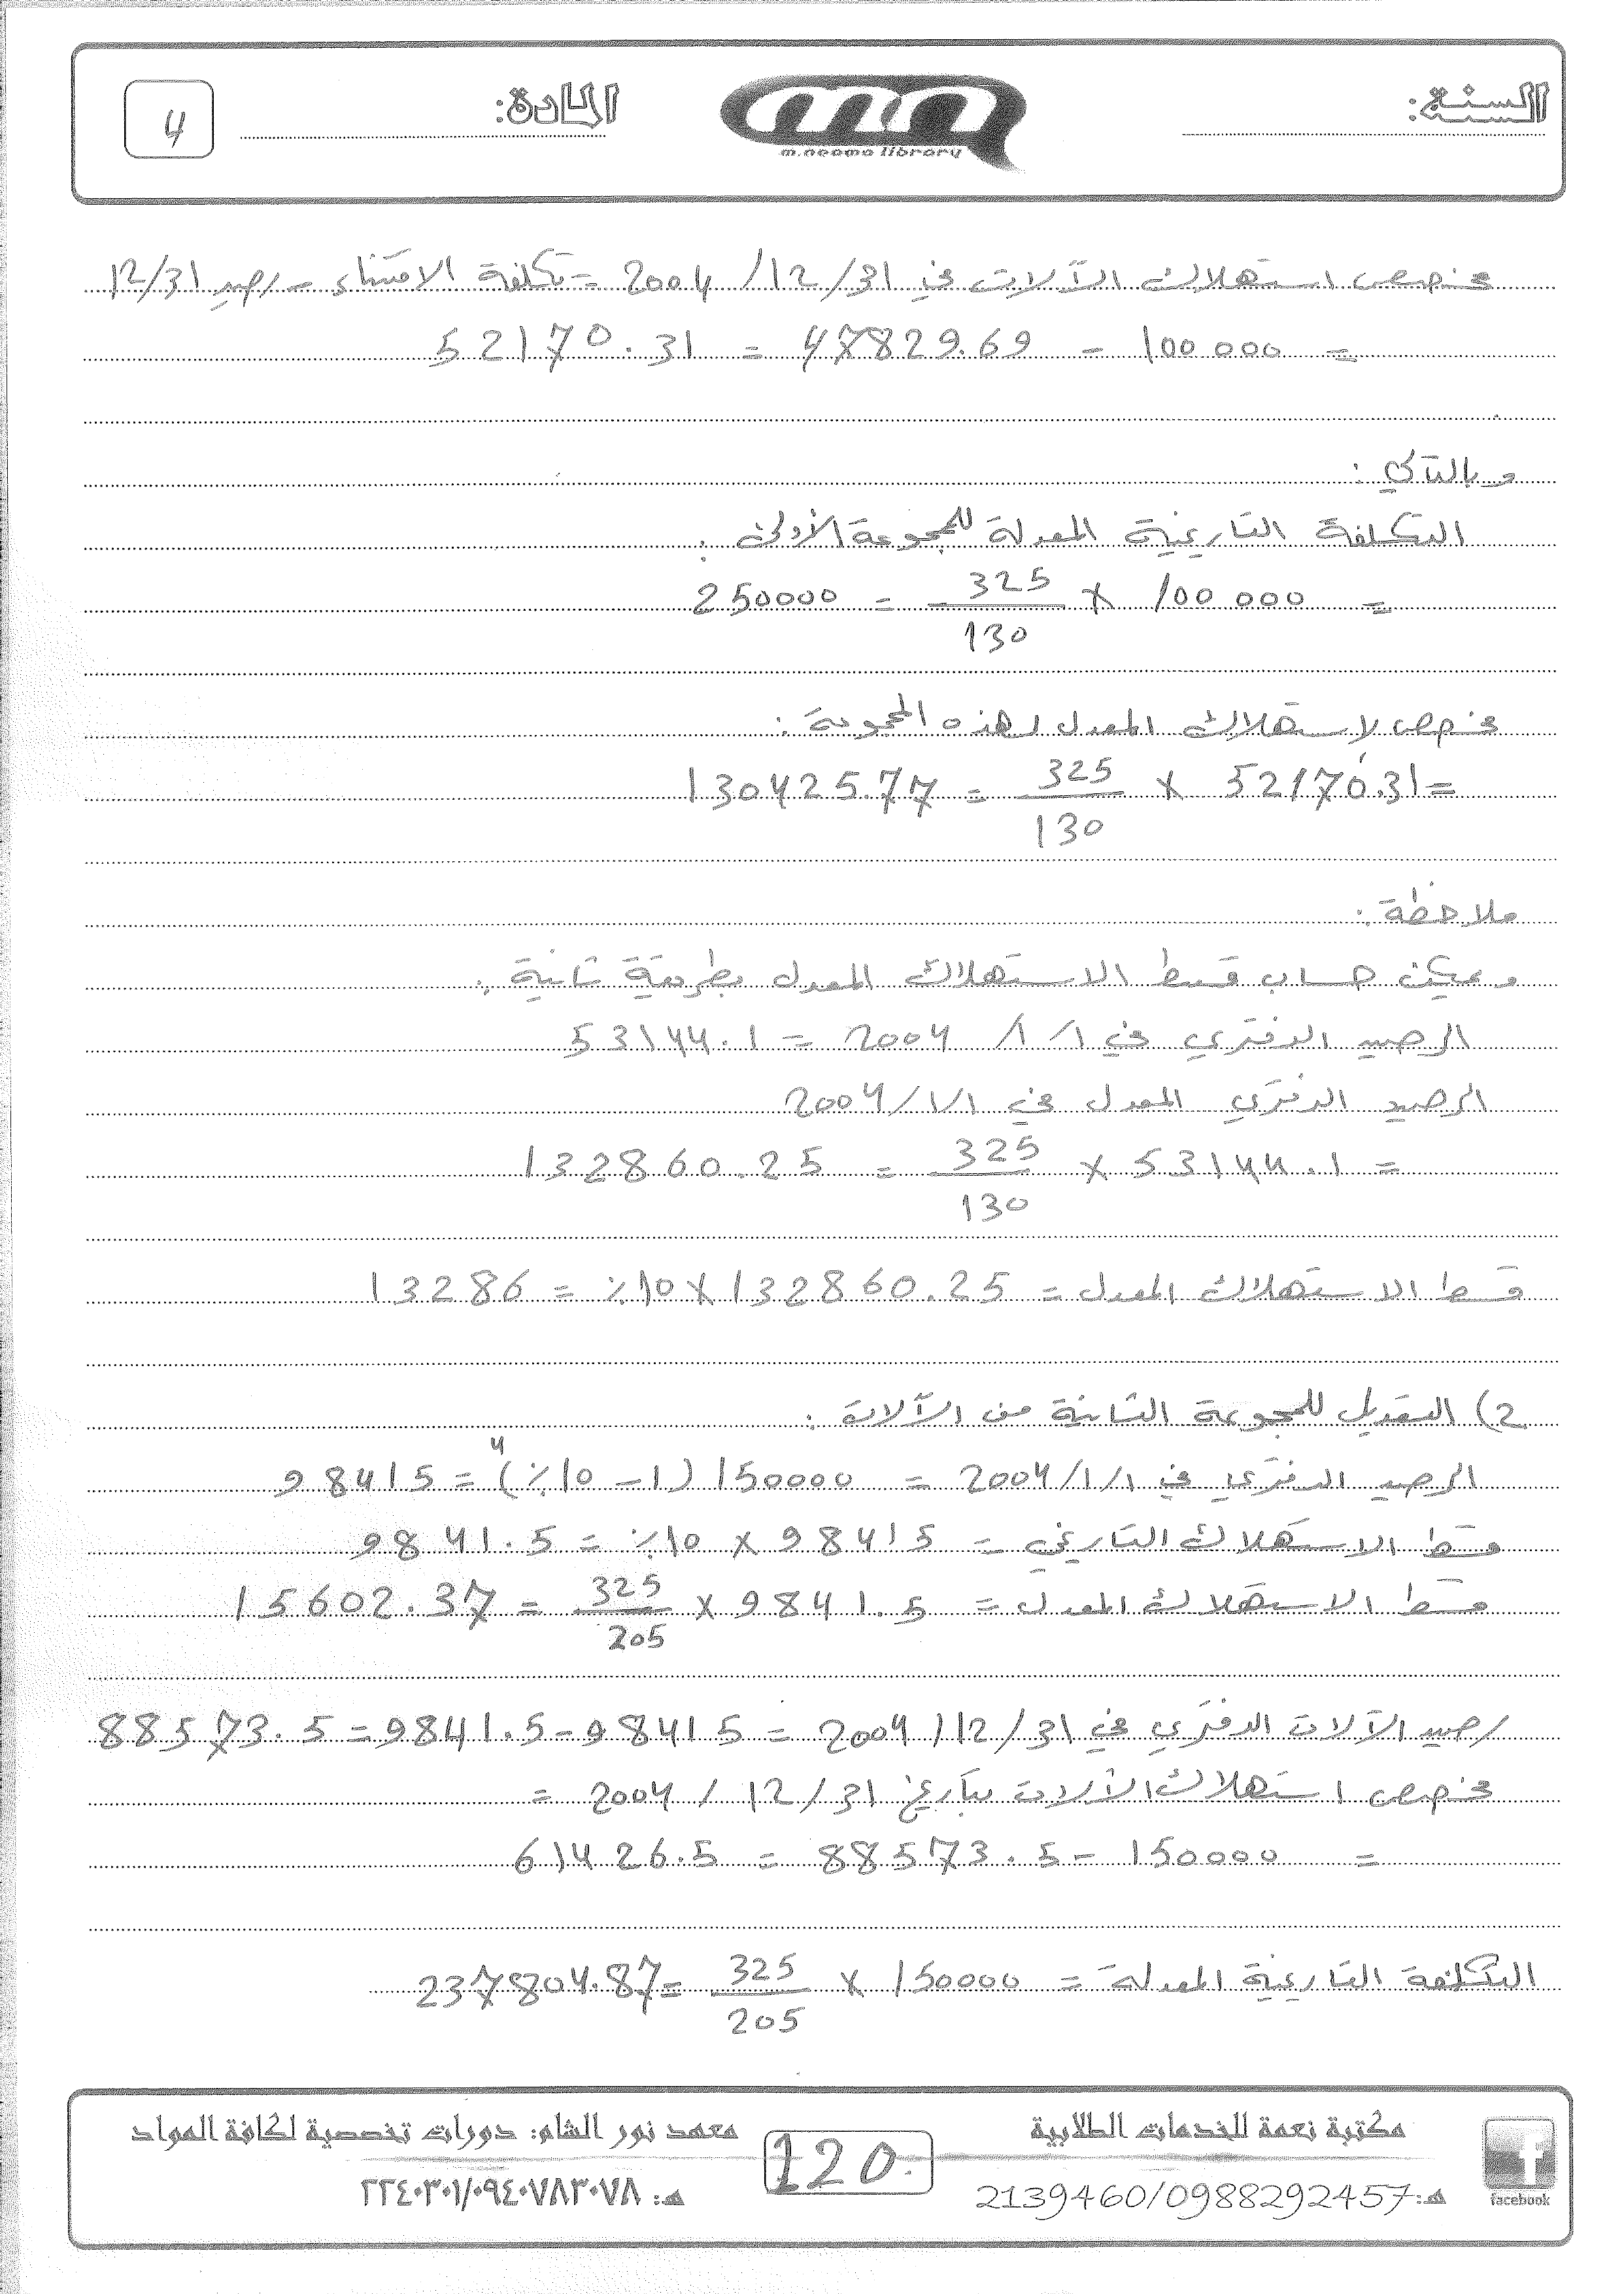 السنة:
m.neama library
المادة:
4
مخصص استهلاك الآلات في 31/12/2004 = تكلفة الاقتناء - رصيد 31/12
= 100000 - 47829.69 = 52170.31
وبالتالي:
التكلفة التاريخية المعدلة للمجموعة الأولى:
= 100000 × 325/130 = 250000
مخصص لاستهلاك المعدل لهذه المجموعة:
= 52170.31 × 325/130 = 130425.77
ملاحظة:
ويمكن حساب قسط الاستهلاك المعدل بطريقة ثانية:
الرصيد الدفتري في 1/1/2004 = 53144.1
الرصيد الدفتري المعدل في 1/1/2004
= 53144.1 × 325/130 = 132860.25
قسط الاستهلاك المعدل = 132860.25 × 10% = 13286
2) التعديل للمجموعة الثانية من الآلات:
الرصيد الدفتري في 1/1/2004 = 150000 (1 - 10%)^4 = 98415
قسط الاستهلاك التاريخي = 98415 × 10% = 9841.5
قسط الاستهلاك المعدل = 9841.5 × 325/205 = 15602.37
رصيد الآلات الدفتري في 31/12/2004 = 98415 - 9841.5 = 88573.5
مخصص استهلاك الآلات بتاريخ 31/12/2004 =
= 150000 - 88573.5 = 61426.5
التكلفة التاريخية المعدلة = 150000 × 325/205 = 237804.87
مكتبة نعمة للخدمات الطلابية
هـ: 2139460/0988292457
facebook
120
معهد نور الشام: دورات تخصصية لكافة المواد
هـ: ٢٢٤٠٣٠١/٠٩٤٠٧٨٣٠٧٨